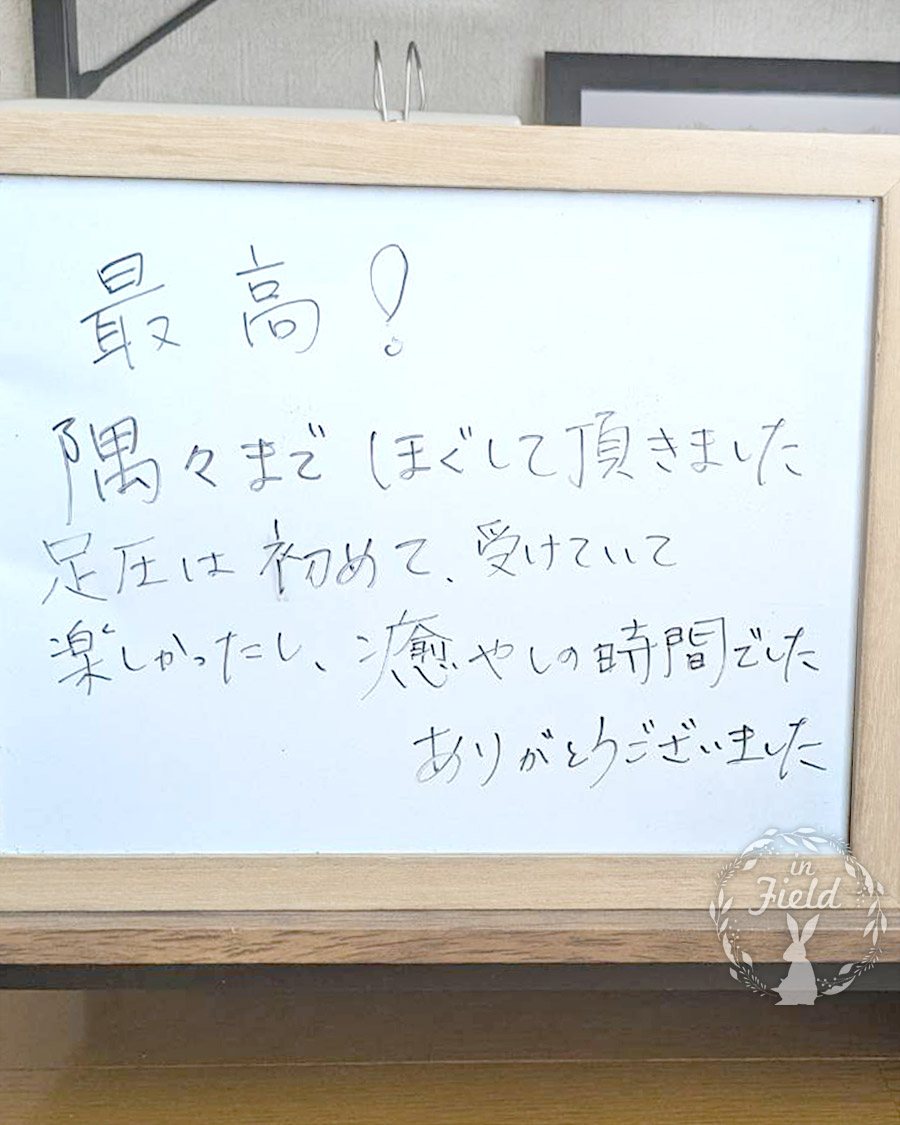 最高!
隅々まで ほぐして頂きました
足圧は 初めて、受けていて
楽しかったし、癒やしの時間でした
ありがとうございました
in
Field